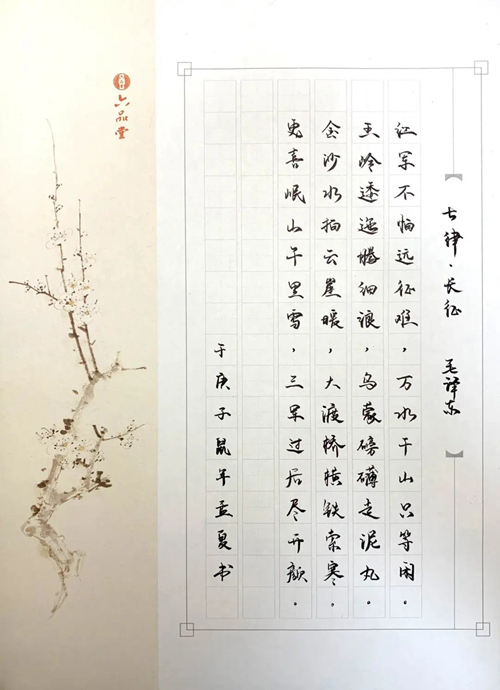 七律·长征 毛泽东
红军不怕远征难，万水千山只等闲。
五岭逶迤腾细浪，乌蒙磅礴走泥丸。
金沙水拍云崖暖，大渡桥横铁索寒。
更喜岷山千里雪，三军过后尽开颜。
于庚子鼠年孟夏书
六品堂